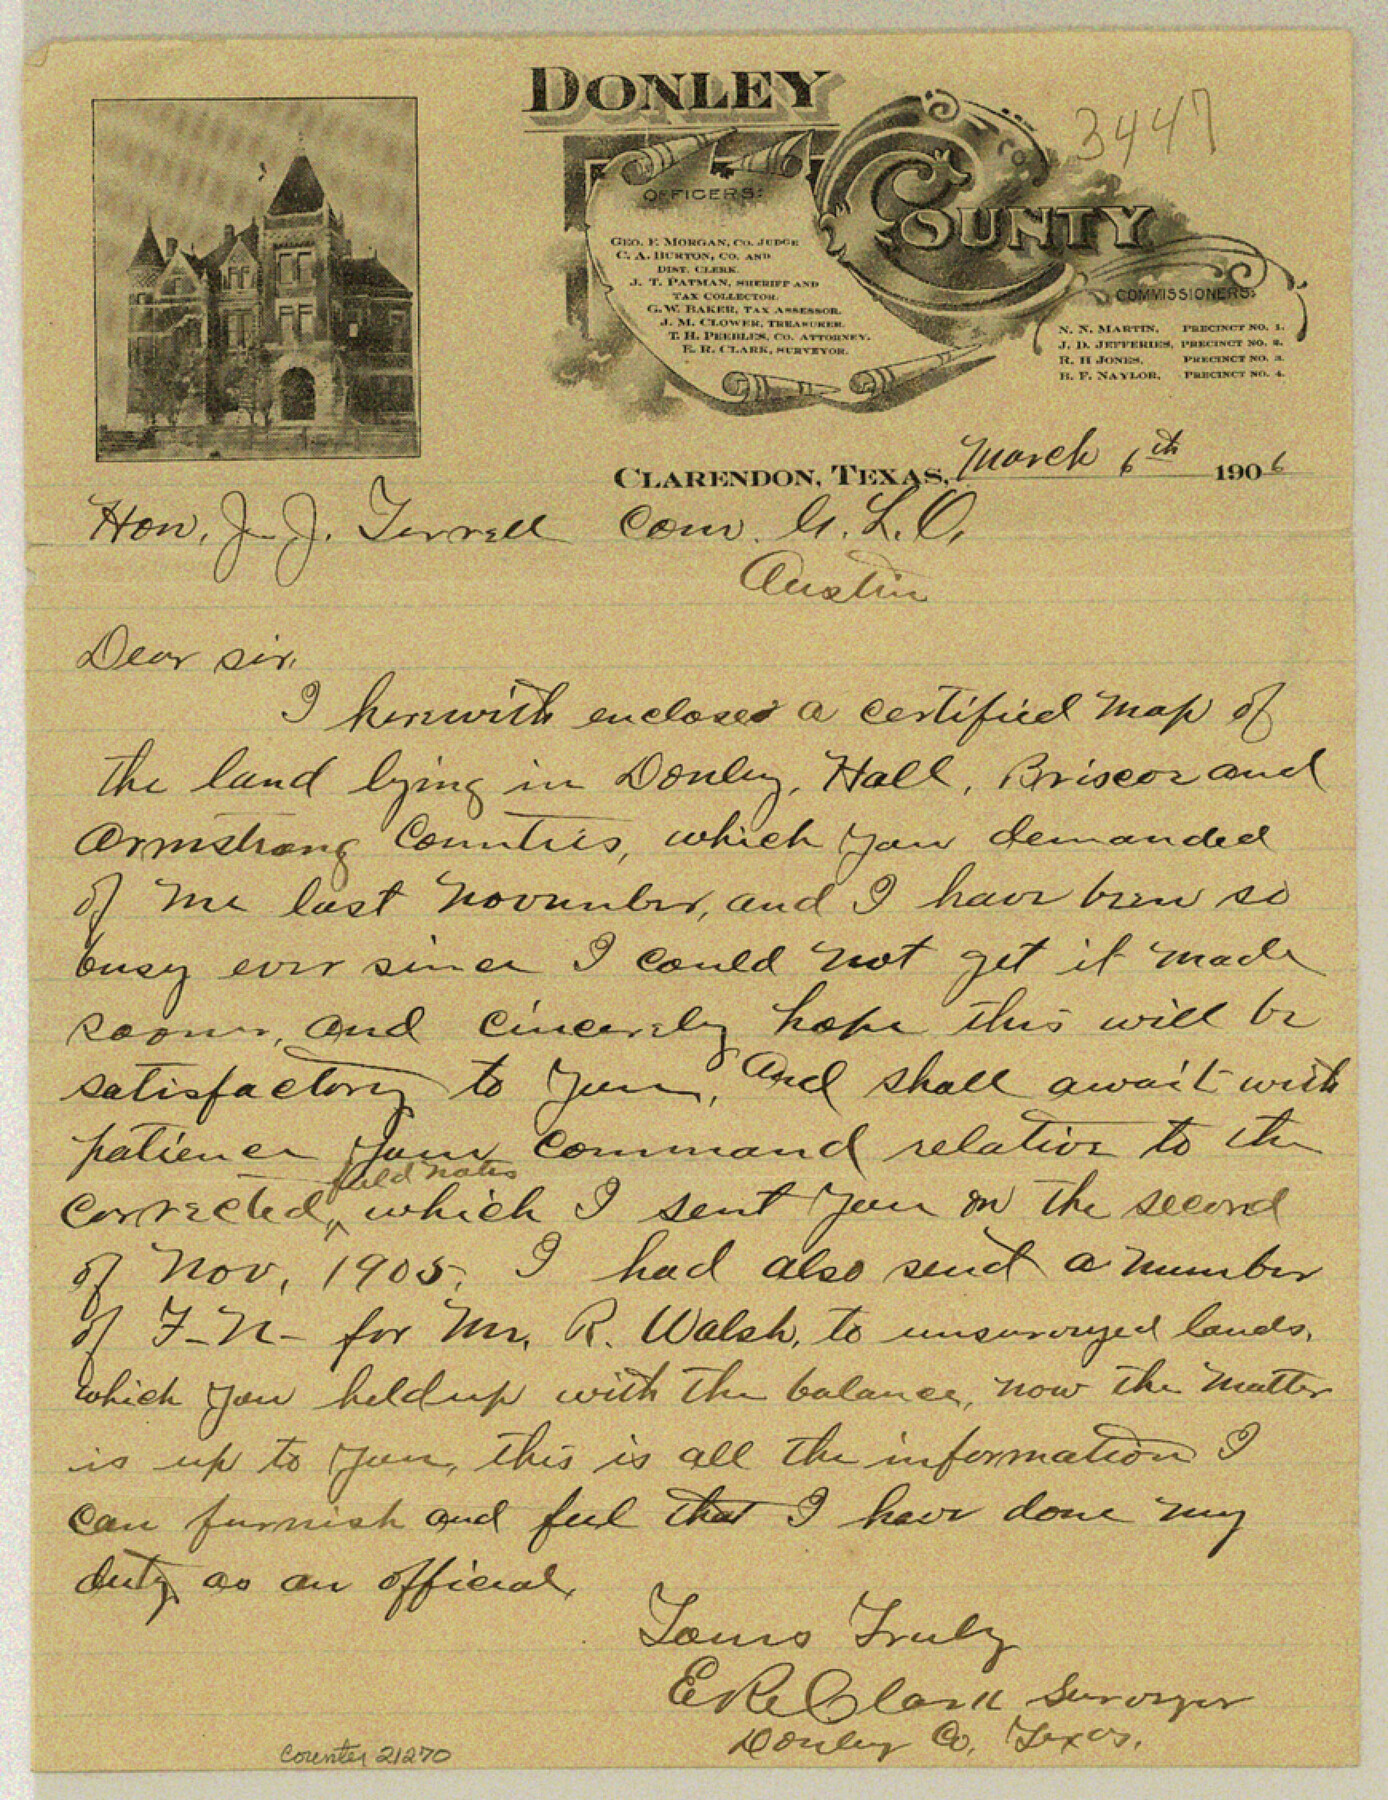 DONLEY
COUNTY
3447
OFFICERS:
GEO. F. MORGAN, CO. JUDGE
C. A. BURTON, CO. AND
DIST. CLERK.
J. T. PATMAN, SHERIFF AND
TAX COLLECTOR.
G. W. BAKER, TAX ASSESSOR.
J. M. CLOWER, TREASURER.
T. H. PEEBLES, CO. ATTORNEY.
E. R. CLARK, SURVEYOR.
COMMISSIONERS:
N. N. MARTIN, PRECINCT NO. 1.
J. D. JEFFERIES, PRECINCT NO. 2.
R. H JONES, PRECINCT NO. 3.
B. F. NAYLOR, PRECINCT NO. 4.
CLARENDON, TEXAS, March 6th 1906
Hon. J. J. Terrell Com. G. L. O.
Austin
Dear sir.
I herewith enclosed a certified map of
the land lying in Donley, Hall, Briscoe and
Armstrong Counties, which you demanded
of me last November, and I have been so
busy ever since I could not get it made
sooner, and cincerely hope this will be
satisfactory to you, And shall await with
patience your command relative to the
field notes
corrected, which I sent you on the second
of Nov, 1905, I had also send a number
of F-N- for Mr. R. Walsh, to unsurveyed lands,
which you held up with the balance, now the matter
is up to you, this is all the information I
can furnish and feel that I have done my
duty as an official,
Yours Truly
E R Clark Surveyor
Donley Co, Texas.
Counter 21270